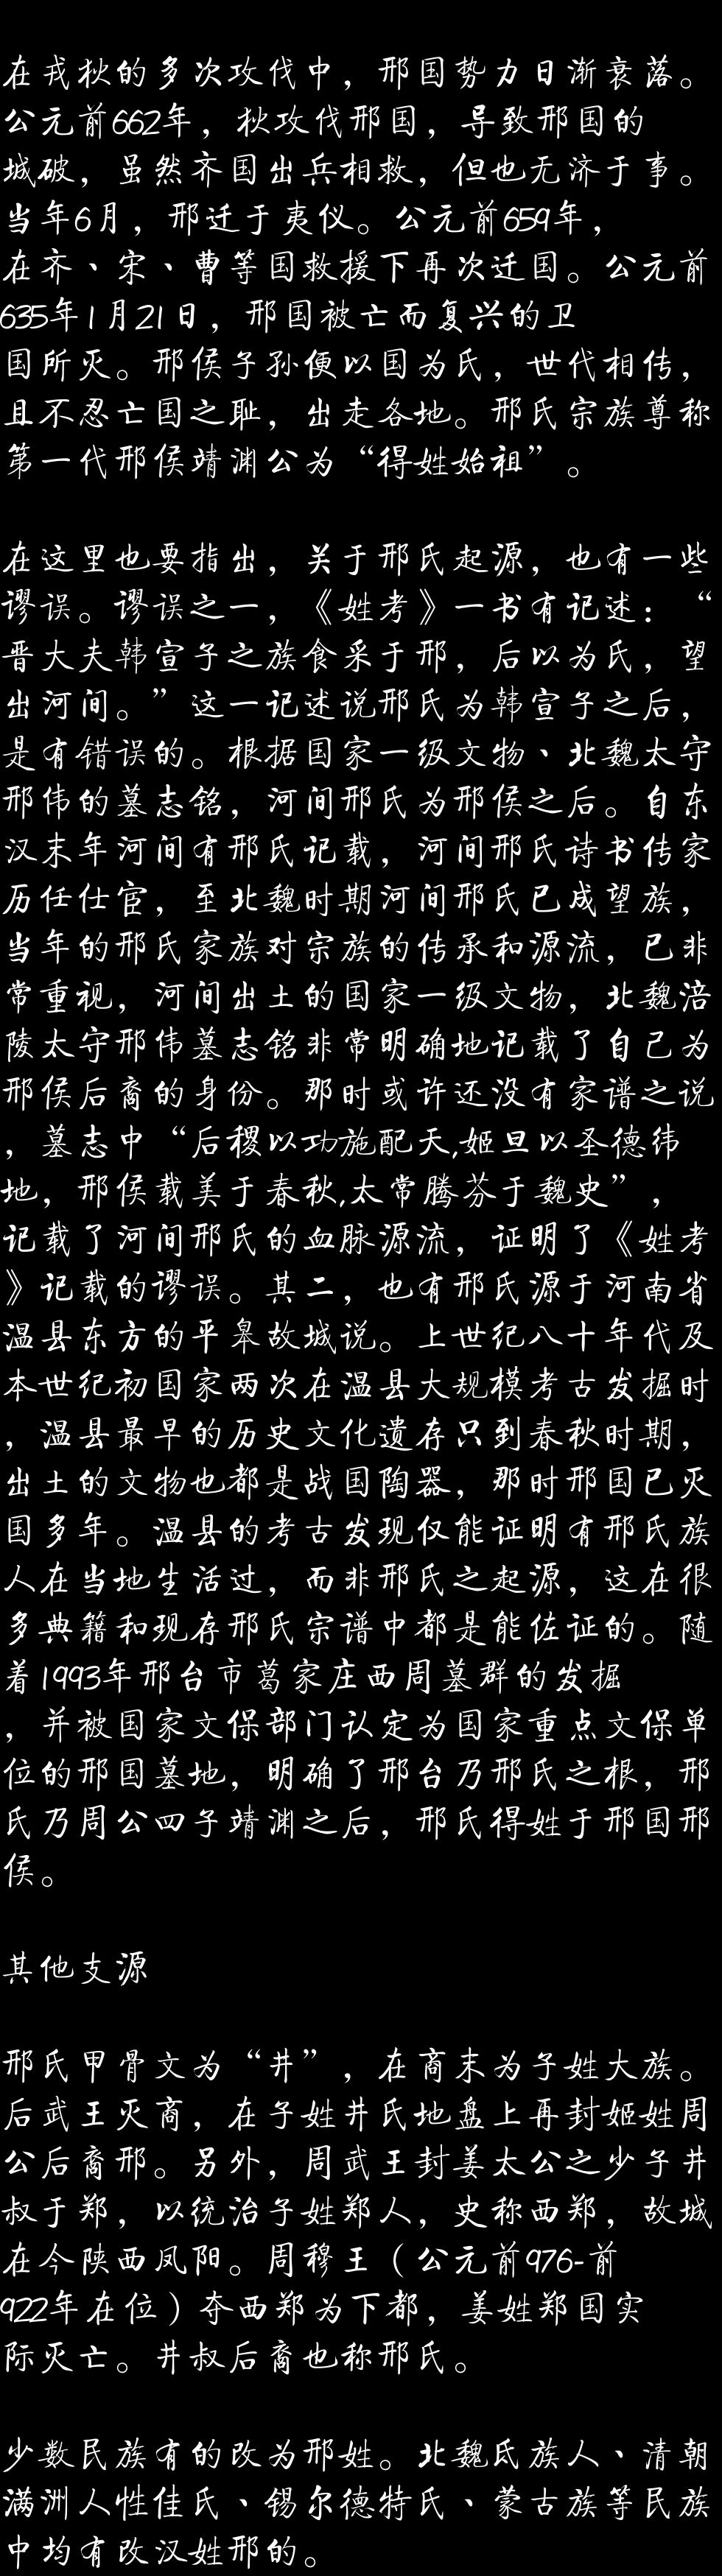 在戎狄的多次攻伐中，邢国势力日渐衰落。
公元前662年，狄攻伐邢国，导致邢国的
城破，虽然齐国出兵相救，但也无济于事。
当年6月，邢迁于夷仪。公元前659年，
在齐、宋、曹等国救援下再次迁国。公元前
635年1月21日，邢国被亡而复兴的卫
国所灭。邢侯子孙便以国为氏，世代相传，
且不忍亡国之耻，出走各地。邢氏宗族尊称
第一代邢侯靖渊公为“得姓始祖”。
在这里也要指出，关于邢氏起源，也有一些
谬误。谬误之一，《姓考》一书有记述：“
晋大夫韩宣子之族食采于邢，后以为氏，望
出河间。”这一记述说邢氏为韩宣子之后，
是有错误的。根据国家一级文物、北魏太守
邢伟的墓志铭，河间邢氏为邢侯之后。自东
汉末年河间有邢氏记载，河间邢氏诗书传家
历任仕宦，至北魏时期河间邢氏已成望族，
当年的邢氏家族对宗族的传承和源流，已非
常重视，河间出土的国家一级文物，北魏涪
陵太守邢伟墓志铭非常明确地记载了自己为
邢侯后裔的身份。那时或许还没有家谱之说
，墓志中“后稷以功施配天,姬旦以圣德纬
地，邢侯载美于春秋,太常腾芬于魏史”，
记载了河间邢氏的血脉源流，证明了《姓考
》记载的谬误。其二，也有邢氏源于河南省
温县东方的平皋故城说。上世纪八十年代及
本世纪初国家两次在温县大规模考古发掘时
，温县最早的历史文化遗存只到春秋时期，
出土的文物也都是战国陶器，那时邢国已灭
国多年。温县的考古发现仅能证明有邢氏族
人在当地生活过，而非邢氏之起源，这在很
多典籍和现存邢氏宗谱中都是能佐证的。随
着1993年邢台市葛家庄西周墓群的发掘
，并被国家文保部门认定为国家重点文保单
位的邢国墓地，明确了邢台乃邢氏之根，邢
氏乃周公四子靖渊之后，邢氏得姓于邢国邢
侯。
其他支源
邢氏甲骨文为“井”，在商末为子姓大族。
后武王灭商，在子姓井氏地盘上再封姬姓周
公后裔邢。另外，周武王封姜太公之少子井
叔于郑，以统治子姓郑人，史称西郑，故城
在今陕西凤阳。周穆王（公元前976-前
922年在位）夺西郑为下都，姜姓郑国实
际灭亡。井叔后裔也称邢氏。
少数民族有的改为邢姓。北魏氐族人、清朝
满洲人性佳氏、锡尔德特氏、蒙古族等民族
中均有改汉姓邢的。